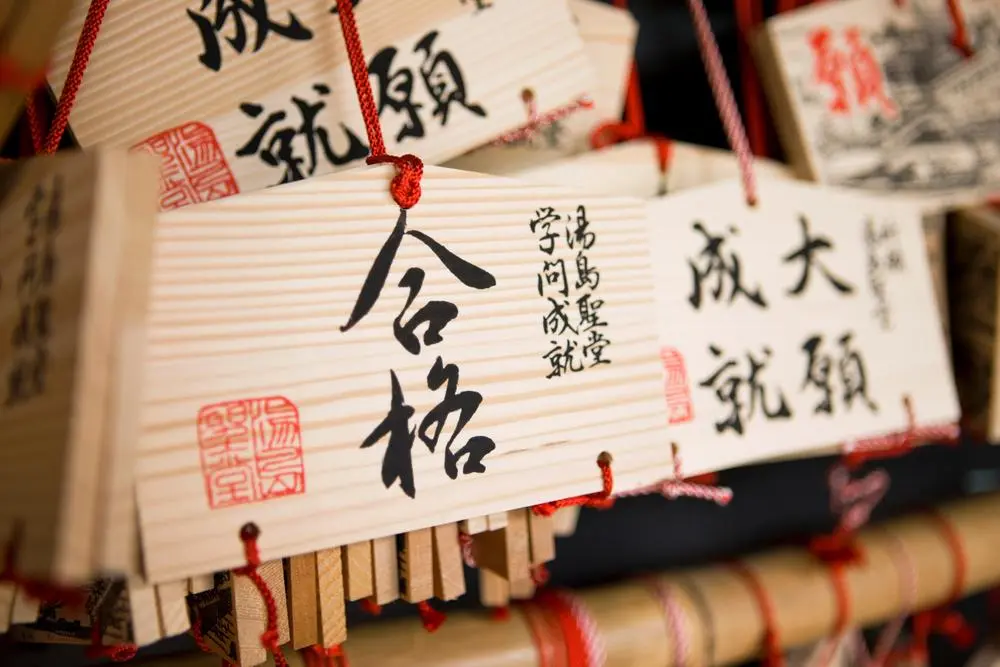 願
成就
願
湯島聖堂
学問成就
合格
大願
成就